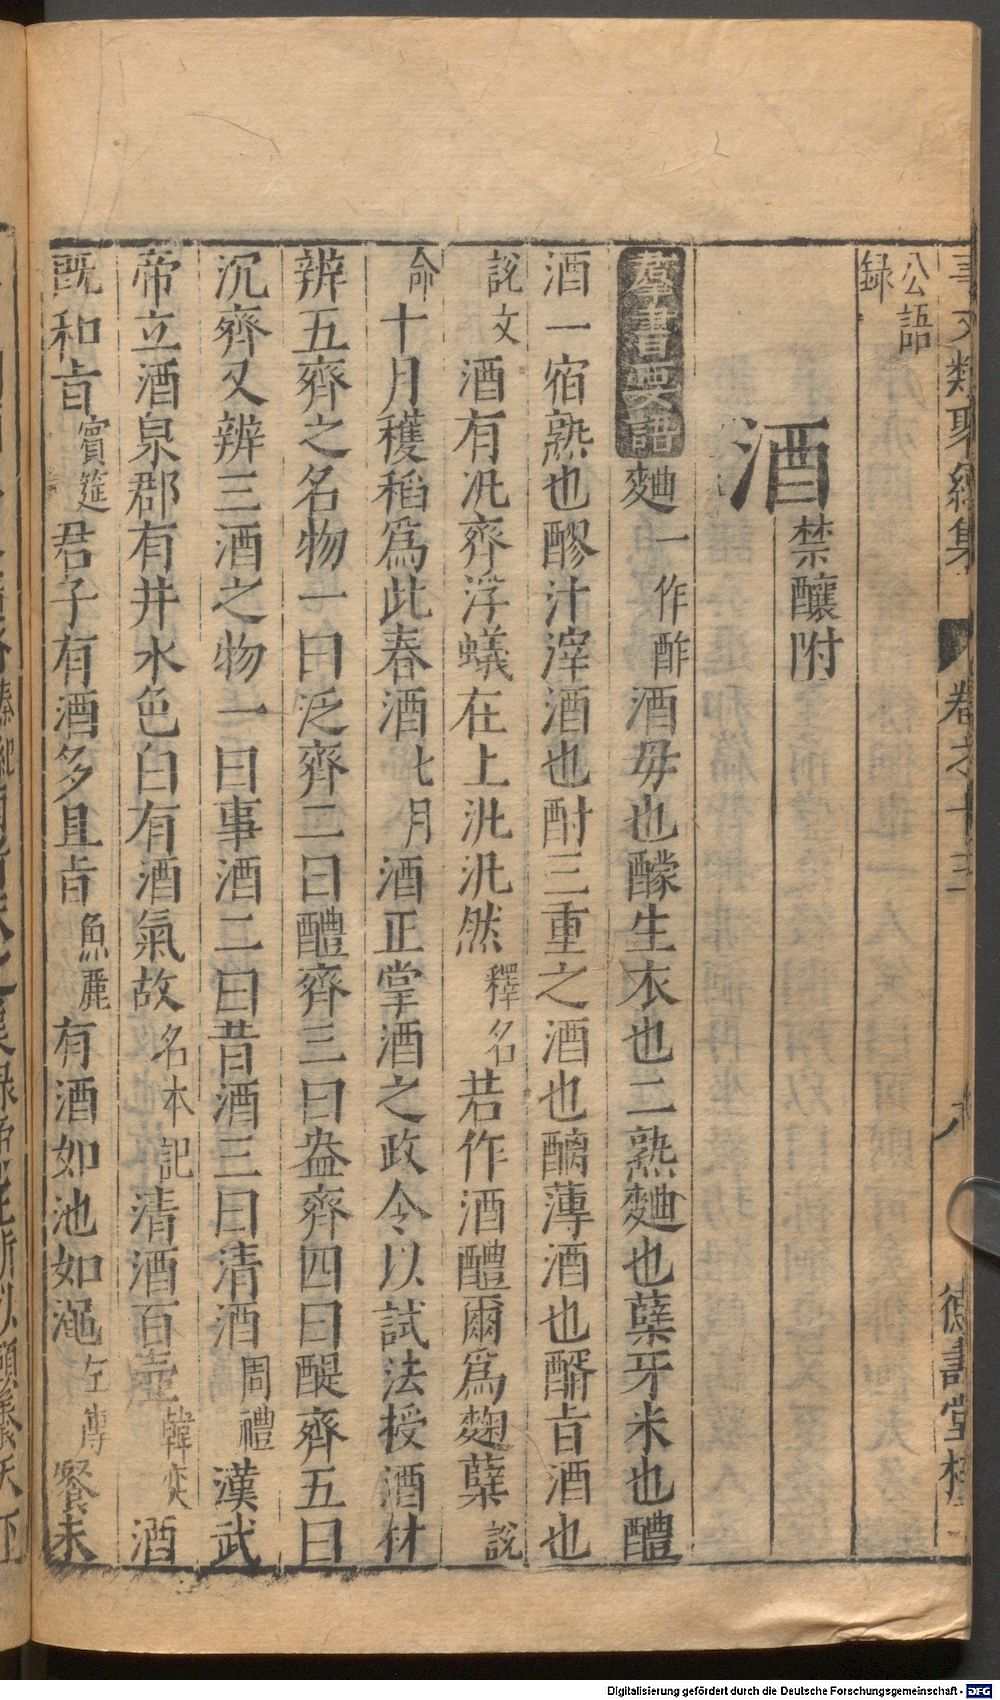 事文類聚續集 卷之十三 德壽堂梓
公語
録
酒禁釀附
羣書要語 麯一作酢酒母也醭生衣也二熟麯也蘖牙米也醴
酒一宿熟也醪汁滓酒也酎三重之酒也醨薄酒也醑旨酒也
説文酒有汎齊浮蟻在上汎汎然釋名若作酒醴爾爲麴蘖説
命十月穫稻爲此春酒七月酒正掌酒之政令以試法授酒材
辨五齊之名物一曰泛齊二曰醴齊三曰盎齊四曰醍齊五曰
沉齊又辨三酒之物一曰事酒二曰昔酒三曰清酒周禮漢武
帝立酒泉郡有井水色白有酒氣故名本記清酒百壺韓奕酒
既和旨賓筵君子有酒多且旨魚麗有酒如池如澠左傳餐未
Digitalisierung gefördert durch die Deutsche Forschungsgemeinschaft - DFG